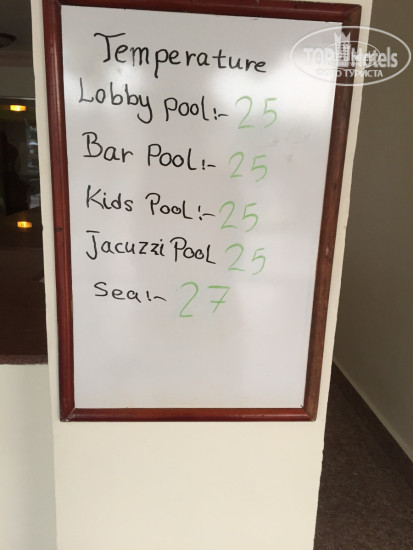 Temperature
Lobby Pool:- 25
Bar Pool:- 25
Kids Pool:- 25
Jacuzzi Pool 25
Sea:- 27
TopHotels
ФОТО ТУРИСТА